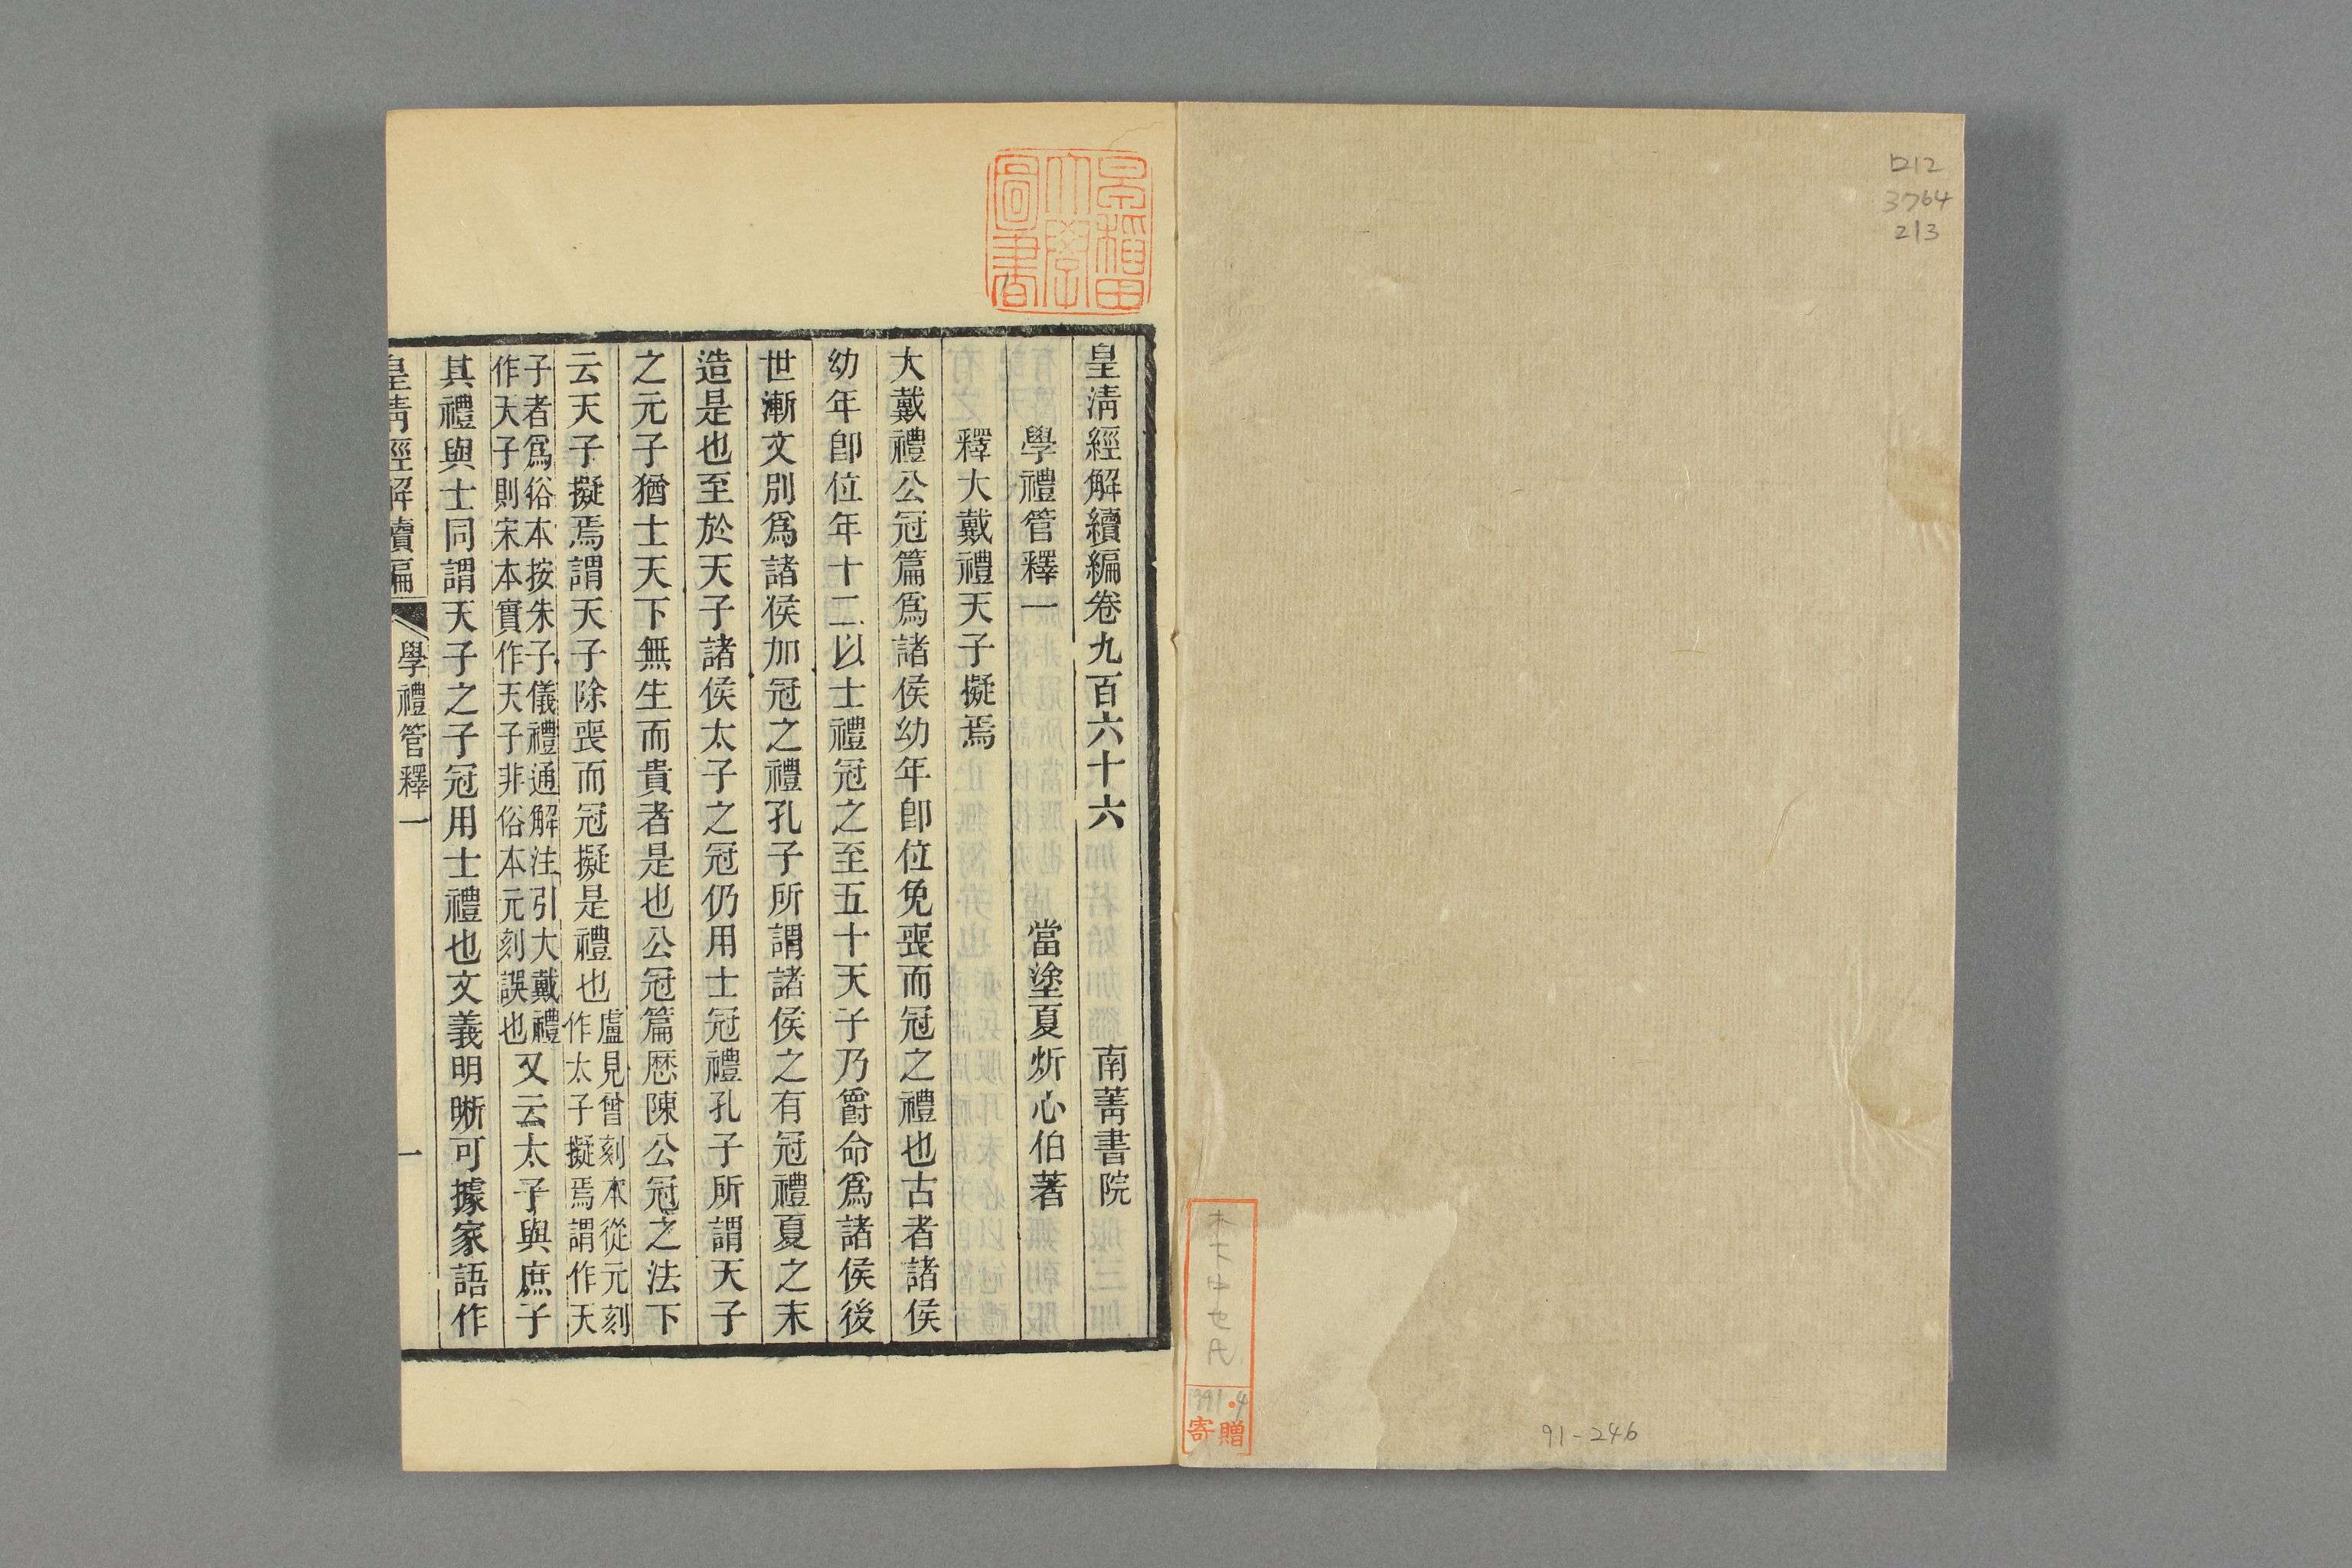 ロ12
3764
213
木下中七氏
1991.4
寄贈
91-246
早稲田
大學
圖書
皇清經解續編卷九百六十六 南菁書院
學禮管釋一 當塗夏炘心伯著
釋大戴禮天子擬焉
大戴禮公冠篇爲諸侯幼年卽位免喪而冠之禮也古者諸侯
幼年卽位年十二以士禮冠之至五十天子乃爵命爲諸侯後
世漸文別爲諸侯加冠之禮孔子所謂諸侯之有冠禮夏之末
造是也至於天子諸侯太子之冠仍用士冠禮孔子所謂天子
之元子猶士天下無生而貴者是也公冠篇歷陳公冠之法下
云天子擬焉謂天子除喪而冠擬是禮也盧見曾刻本從元刻
作太子擬焉謂作天
子者爲俗本按朱子儀禮通解注引大戴禮
作天子則宋本實作天子非俗本元刻誤也又云太子與庶子
其禮與士同謂天子之子冠用士禮也文義明晰可據家語作
皇清經解續編 學禮管釋一 一